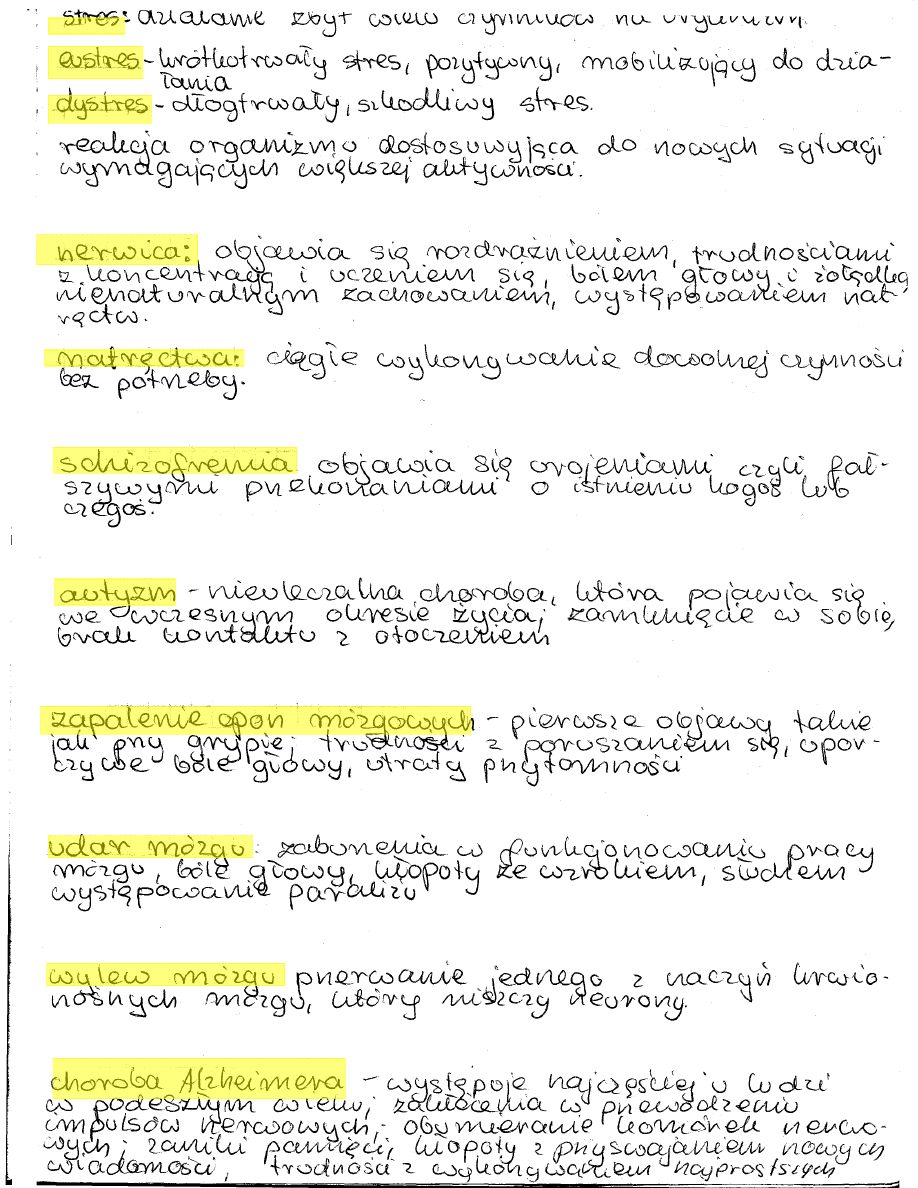 stres: działanie zbyt wielu czynników na organizm
eustres - krótkotrwały stres, pozytywny, mobilizujący do dzia-
łania
dystres - długtrwały, szkodliwy stres.
reakcja organizmu dostosowująca do nowych sytuacji
wymagających większej aktywności.
nerwica: objawia się rozdrażnieniem, trudnościami
z koncentracją i uczeniem się, bólem głowy i żołądka,
nienaturalnym zachowaniem, występowaniem nat-
ręctw.
natręctwa: ciągłe wykonywanie dowolnej czynności
bez potrzeby.
schizofremia objawia się urojeniami czyli fał-
szywymi przekonaniami o istnieniu kogoś lub
czegoś.
autyzm - nieuleczalna choroba, która pojawia się
we wczesnym okresie życia; zamknięcie w sobie,
brak kontaktu z otoczeniem
zapalenie opon mózgowych - pierwsze objawy takie
jak przy grypie; trudności z poruszaniem się, upor-
czywe bóle głowy, utraty przytomności
udar mózgu: zaburzenia w funkcjonowaniu pracy
mózgu, bóle głowy, kłopoty ze wzrokiem, słuchem
występowanie paraliżu
wylew mózgu przerwanie jednego z naczyń krwio-
nośnych mózgu, który niszczy neurony.
choroba Alzheimera - występuje najczęściej u ludzi
w podeszłym wieku; zakłócenia w przewodzeniu
impulsów nerwowych; obumieranie komórek nerwo-
wych; zaniki pamięci, kłopoty z przyswajaniem nowych
wiadomości, trudności z wykonywaniem najprostszych